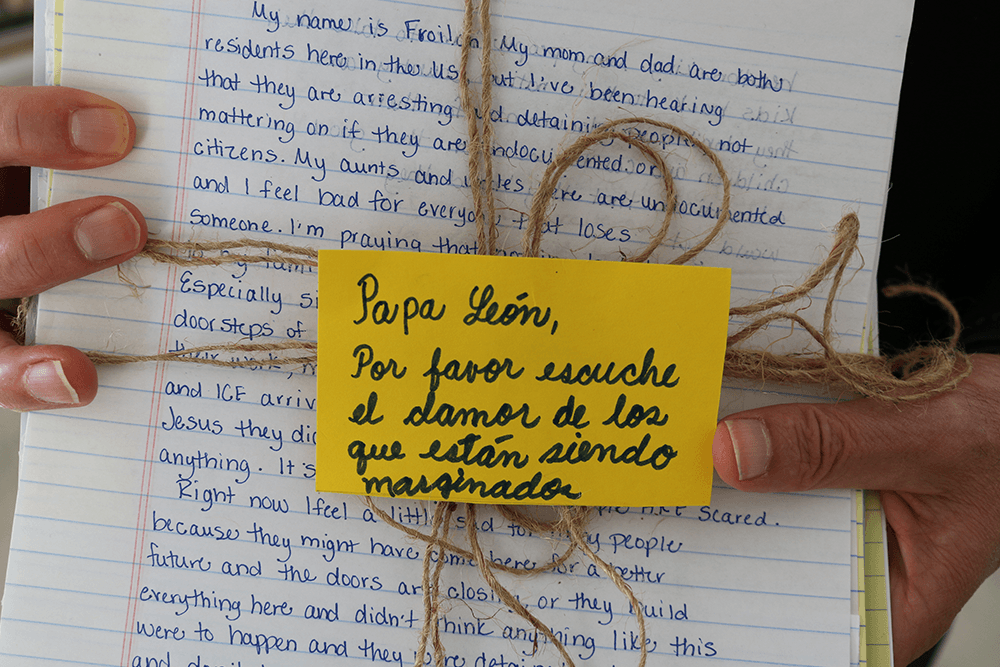 My name is Froilan My mom and dad are both
residents here in the US, but I've been hearing
that they are arresting and detaining people not
mattering on if they are undocumented or
citizens. My aunts and uncles here are undocumented
and I feel bad for everyone that loses
someone. I'm praying that
to my family
Especially si
doorsteps of
their work,
and ICE arriv
Jesus they did
anything. It's
Right now I feel a little sad for my people
because they might have come here for a better
future and the doors are closing or they build
everything here and didn't think anything like this
were to happen and they were
and
Papa León,
Por favor escuche
el clamor de los
que están siendo
marginados
ARE scared.